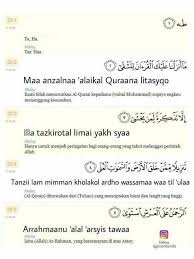 20:1
طه ١
Ta, Ha.
Malay
Taa' Haa.
20:2
مَآ أَنزَلْنَا عَلَيْكَ ٱلْقُرْءَانَ لِتَشْقَىٰٓ ٢
Maa anzalnaa 'alaikal Quraana litasyqo
Malay
Kami tidak menurunkan Al-Quran kepadamu (wahai Muhammad) supaya engkau menanggung kesusahan.
20:3
إِلَّا تَذْكِرَةً لِّمَن يَخْشَىٰ ٣
Illa tazkirotal limai yakh syaa
Malay
Hanya untuk menjadi peringatan bagi orang-orang yang takut melanggar perintah Allah.
20:4
تَنزِيلًا مِّمَّنْ خَلَقَ ٱلْأَرْضَ وَٱلسَّمَٰوَٰتِ ٱلْعُلَى ٤
Tanzii lam mimman kholakol ardho wassamaa waa til 'ulaa
Malay
(Al-Quran) diturunkan dari (Tuhan) yang menciptakan bumi dan langit yang tinggi.
20:5
ٱلرَّحْمَٰنُ عَلَى ٱلْعَرْشِ ٱسْتَوَىٰ ٥
Arrahmaanu 'alal 'arsyis tawaa
Malay
Iaitu (Allah) Ar-Rahman, yang bersemayam di atas Arasy.